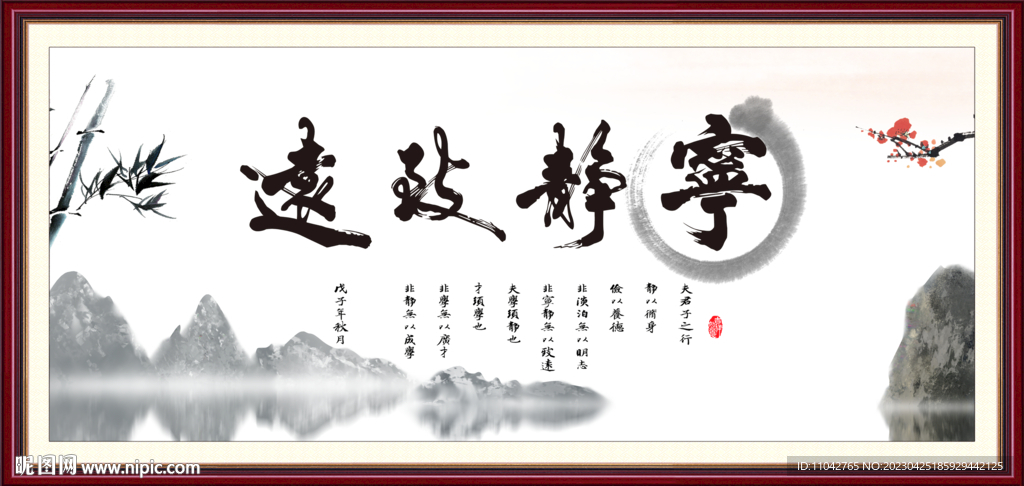 寧靜致遠
夫君子之行
靜以脩身
儉以養德
非淡泊無以明志
非寧靜無以致遠
夫學須靜也
才須學也
非學無以廣才
非靜無以成學
戊子年秋月
昵图网 www.nipic.com
ID:11042765 NO:20230425185929442125